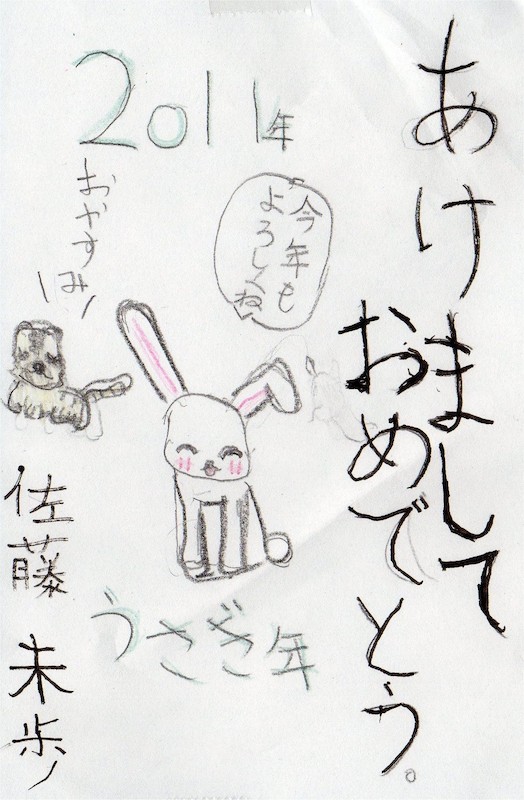 あけまして
おめでとう。
2011年
今年も
よろしくね
おやすみ
うさぎ年
佐藤 未歩